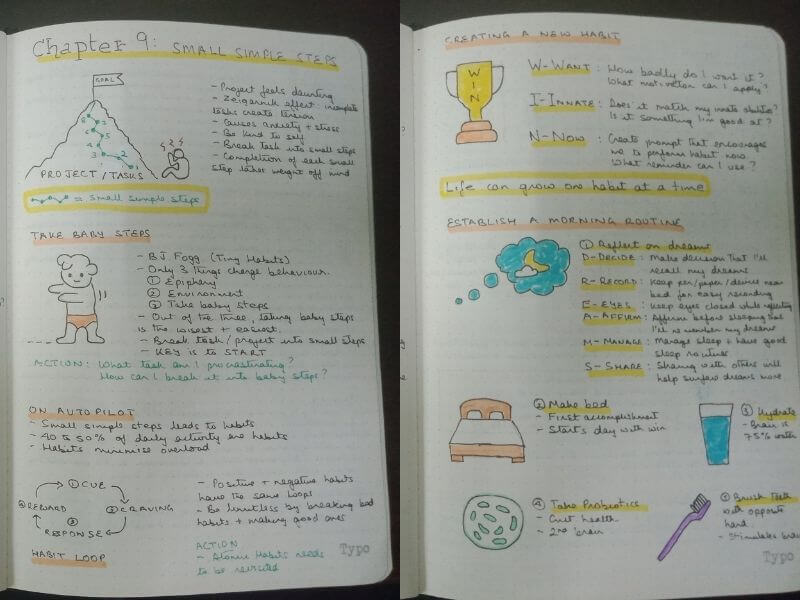 Chapter 9: SMALL SIMPLE STEPS
GOAL
8
7
6
5
4
3
2
1
PROJECT / TASKS
- Project feels daunting
- Zeigarnik effect: incomplete
tasks create tension
- Causes anxiety + stress
- Be kind to self
- Break task into small steps
- Completion of each small
step takes weight off mind
= Small simple steps
TAKE BABY STEPS
- BJ. Fogg (Tiny Habits)
- Only 3 things change behaviour.
① Epiphany
② Environment
③ Take baby steps
- Out of the three, taking baby steps
is the wisest + easiest.
- Break task/project into small steps
- KEY is to START
ACTION: What task am I procrastinating?
How can I break it into baby steps?
ON AUTOPILOT
- Small simple steps leads to habits
- 40 to 50% of daily activity are habits
- Habits minimise overload
① CUE
② CRAVING
③
RESPONSE
④ REWARD
HABIT LOOP
- Positive + negative habits
have the same loops
- Be limitless by breaking bad
habits + making good ones
ACTION
- Atomic Habits needs
to be revisited
Typo
CREATING A NEW HABIT
WIN
W-WANT: How badly do I want it?
What motivation can I apply?
I-INNATE: Does it match my innate abilities?
Is it something I'm good at?
N-NOW: Create prompt that encourages
me to perform habit now.
What reminder can I use?
Life can grow one habit at a time
ESTABLISH A MORNING ROUTINE
① Reflect on dreams
D-DECIDE: Make decision that I'll
recall my dreams
R-RECORD: Keep pen/paper/device near
bed for easy recording
E-EYES: Keep eyes closed while reflecting
A-AFFIRM: Affirm before sleeping that
I'll remember my dreams
M-MANAGE: Manage sleep + have good
sleep routines
S-SHARE: Sharing with others will
help surface dreams more
② Make bed
- First accomplishment
- Starts day with win
③ Hydrate
- Brain is
75% water
④ Take Probiotics
- Gut health
- 2nd brain
⑤ Brush teeth
with opposite
hand.
- Stimulates brain
Typo